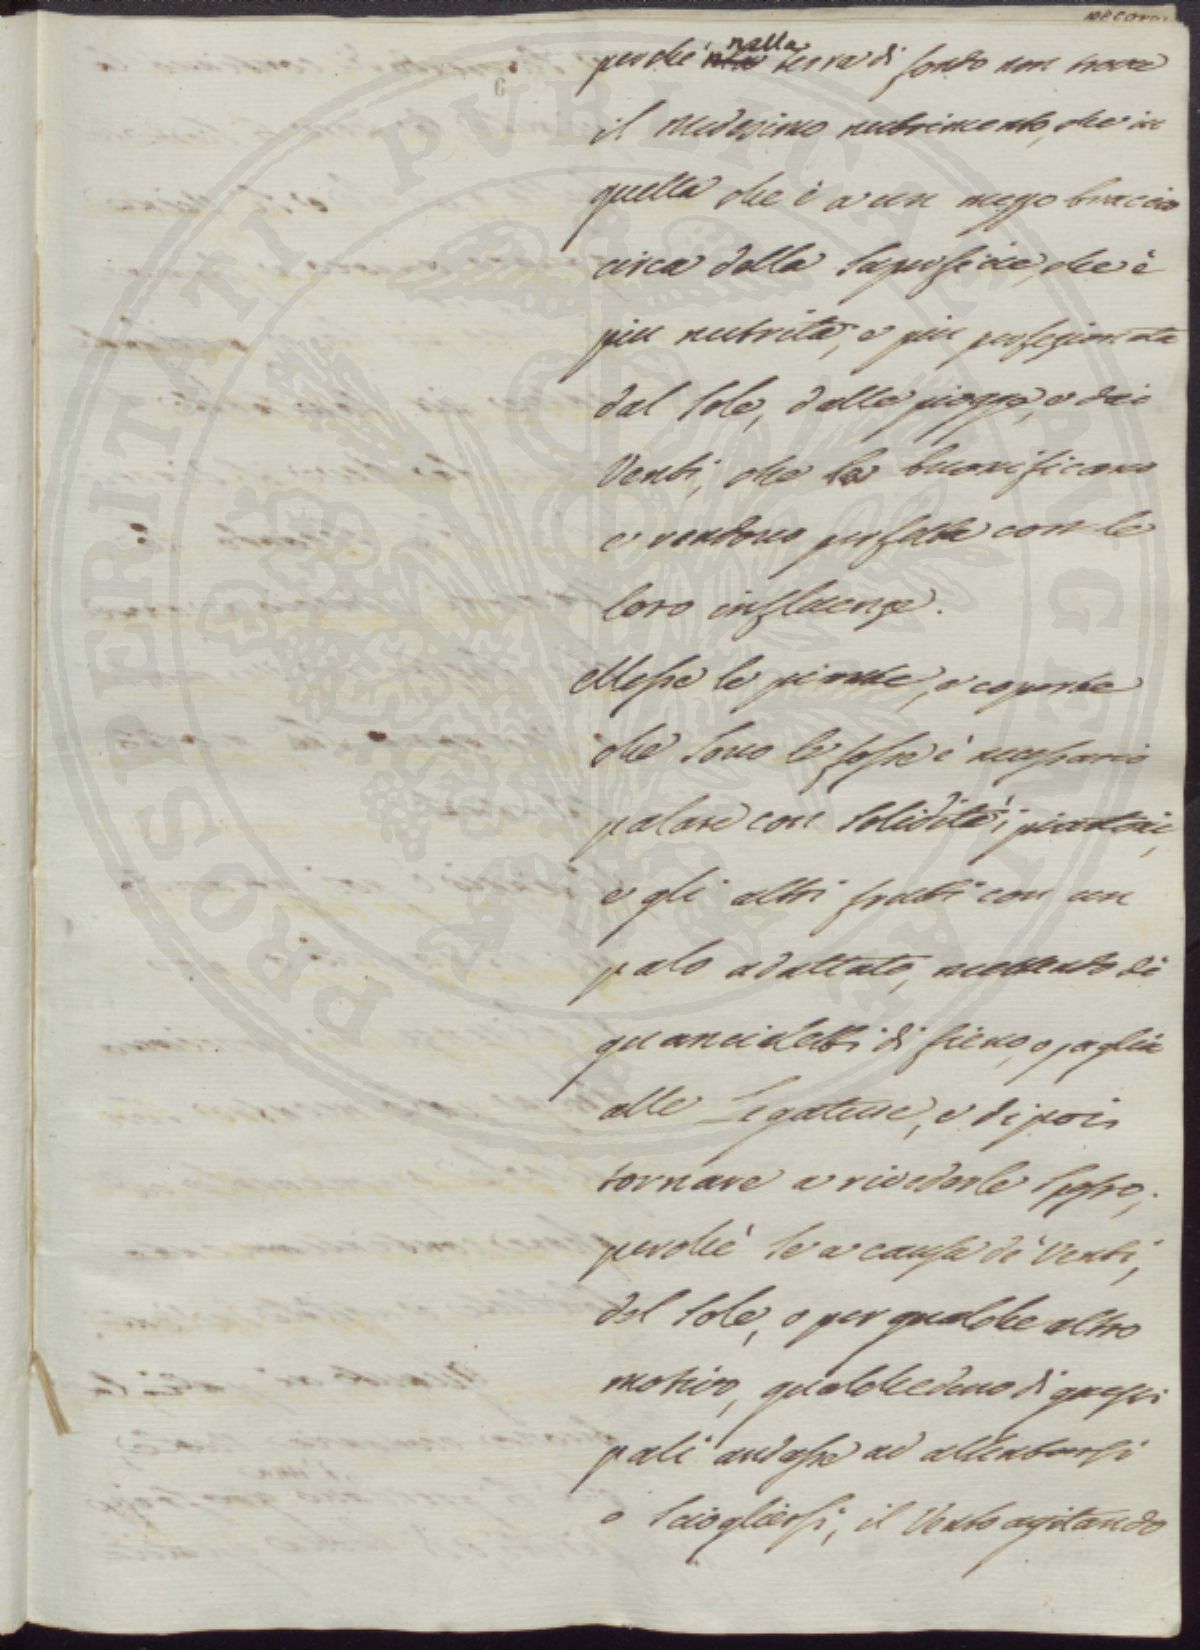 perché nella terra di fondo non trova
il medesimo nutrimento, che in
quella che è a un mezzo braccio
circa della superficie, che è
più nutrita, e più perfezionata
dal Sole, dalle piogge, e dai
Venti, che la buonificano
e rendono perfetta con le
loro influenze.
Messe le piante, e coperte
che sono le fosse è necessario
palare con solidità i piantoni,
e gli altri frutti con un
palo adattato, mettendo dè
guancialetti di fieno, o paglia
alle Legature, e di poi
tornare a rivederle spesso;
perchè se a causa de' Venti,
del Sole, o per qualche altro
motivo, qualcheduno di questi
pali andasse ad allentarsi
o sciogliersi, il Vento agitando
PROSPERITATI PUBLICAE AUGENDAE